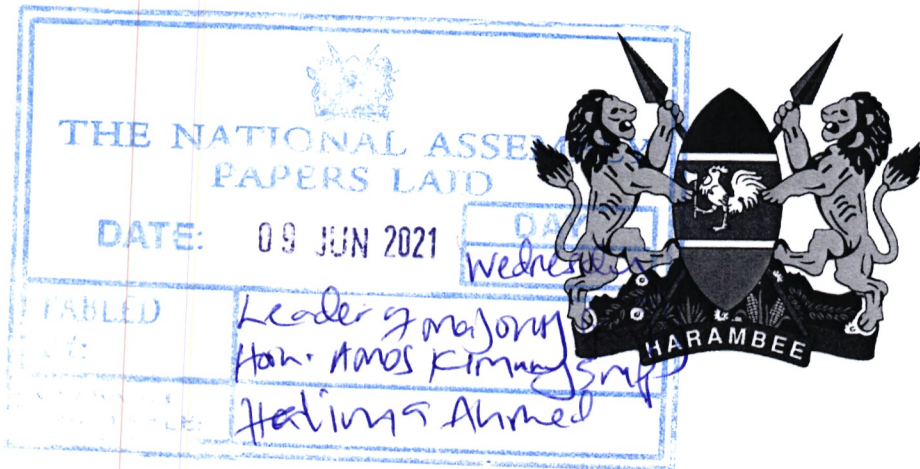 THE NATIONAL ASSEMBLY
PAPERS LAID
DATE: 09 JUN 2021
DAY
Wednesday
TABLED
Leader of majority
Hon. Amos Kimunya, MP
Halima Ahmed
HARAMBEE